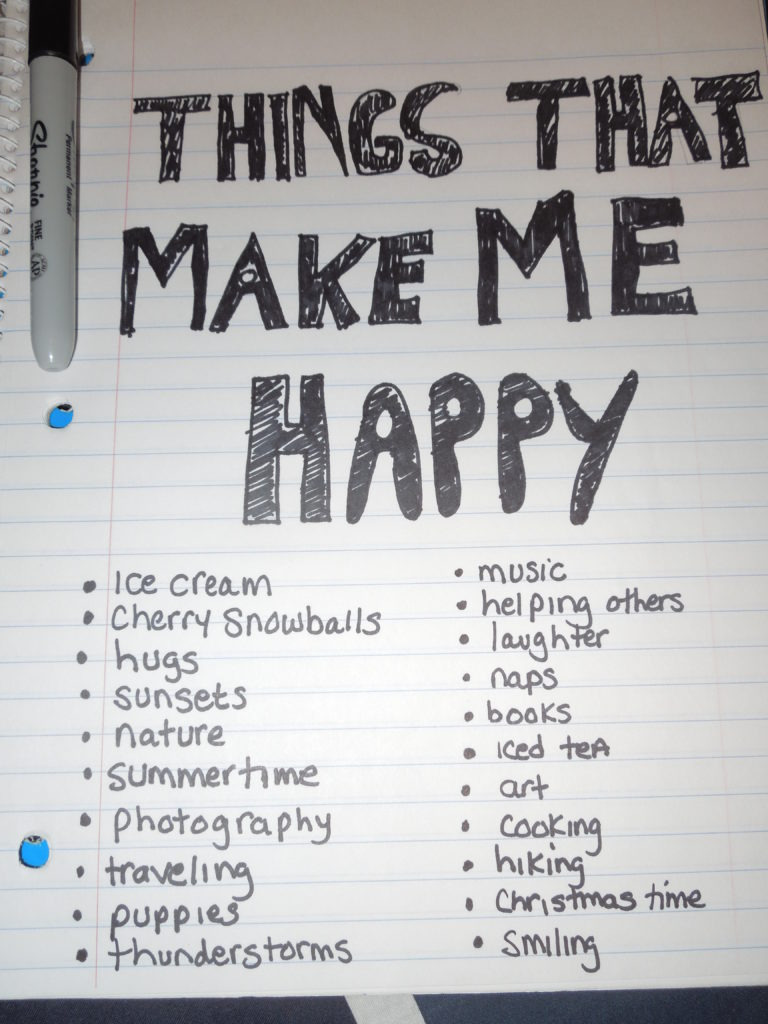 THINGS THAT
MAKE ME
HAPPY
• Ice cream
• Cherry Snowballs
• hugs
• sunsets
• nature
• summertime
• photography
• traveling
• puppies
• thunderstorms
• music
• helping others
• laughter
• naps
• books
• iced teA
• art
• cooking
• hiking
• Christmas time
• smiling
Sharpie
FINE
Permanent Marker
AP